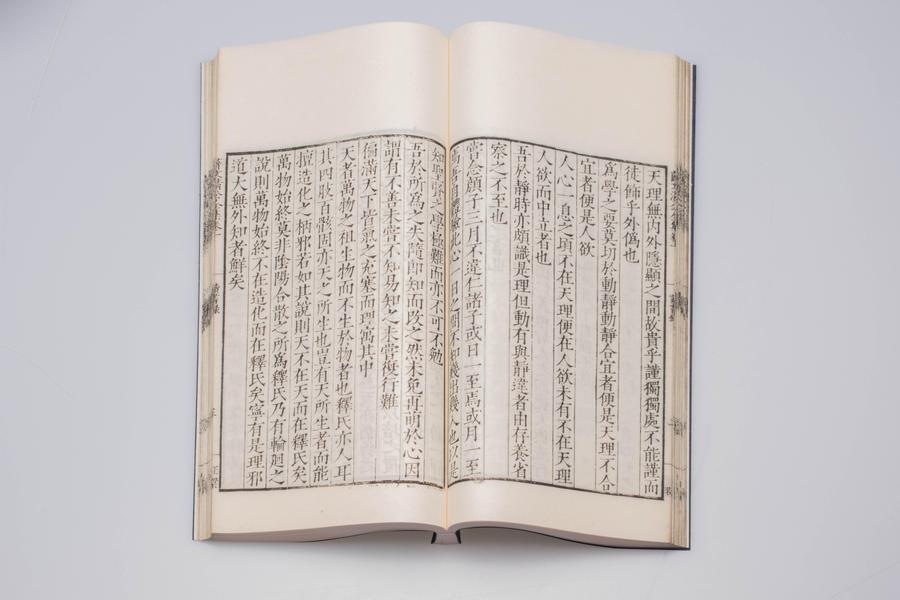 天理無内外隱顯之間故貴乎謹獨獨處不能謹而
徒飾乎外僞也
爲學之要莫切於動靜動靜合宜者便是天理不合
宜者便是人欲
人心一息之頃不在天理便在人欲未有不在天理
人欲而中立者也
吾於靜時亦頗識是理但動有與靜違者由存養省
察之不至也
嘗念顔子三月不違仁諸子或日一至焉或月一至
此心一日之間不知幾出幾入也以是
知聖賢之學極難而亦不可不勉
吾於所爲之失隨即知而改之然未免再萌於心因
謂有不善未嘗不知易知之未嘗復行難
偏滿天下皆氣之充塞而理寓其中
天者萬物之祖生物而不生於物者也釋氏亦人耳
其四肢百骸固亦天之所生也豈有天所生者而能
擅造化之柄邪若如其說則天不在天而在釋氏矣
萬物始終莫非陰陽合散之所爲釋氏乃有輪廻之
說則萬物始終不在造化而在釋氏矣寧有是理邪
道大無外知者鮮矣